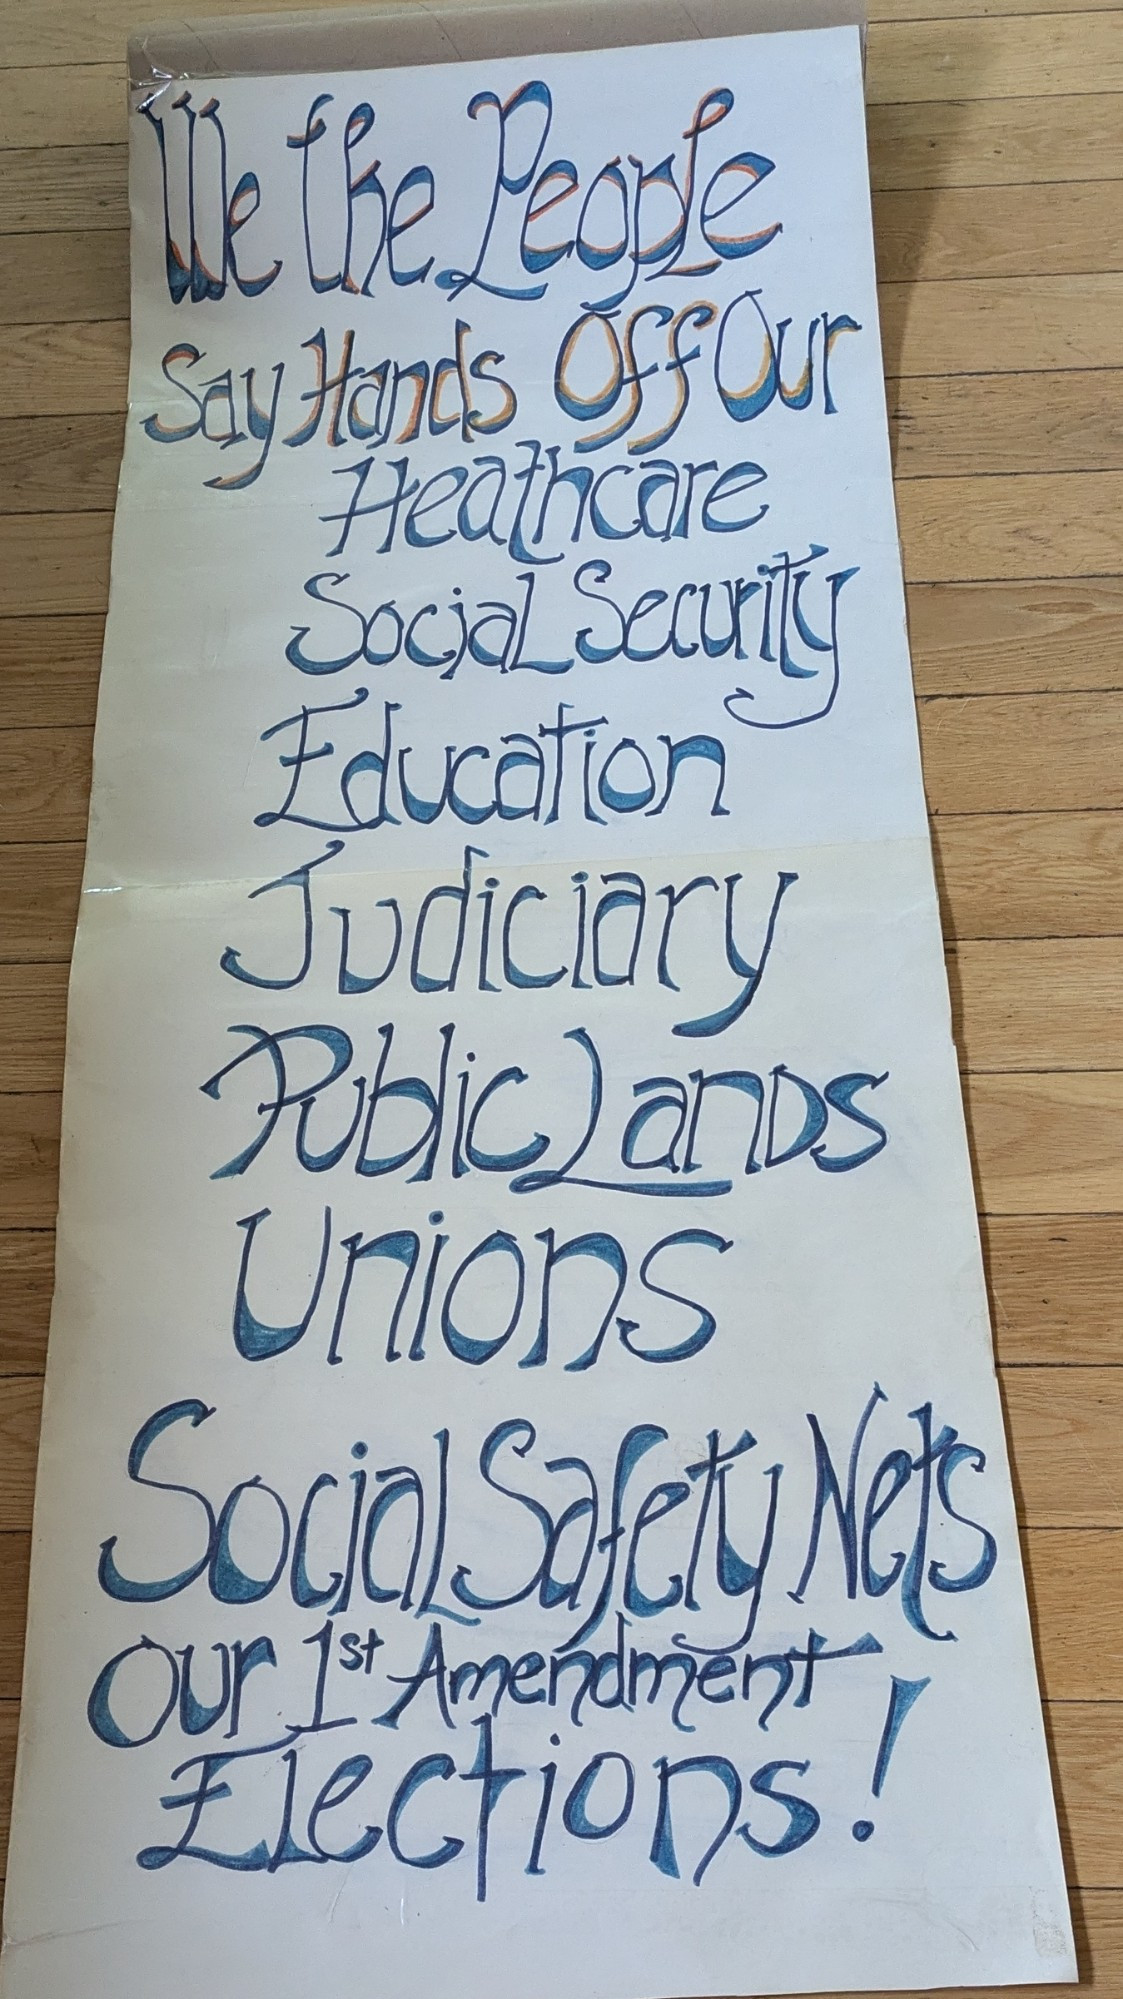 We the People
Say Hands Off Our
Heathcare
Social Security
Education
Judiciary
Public Lands
Unions
Social Safety Nets
Our 1st Amendment
Elections!